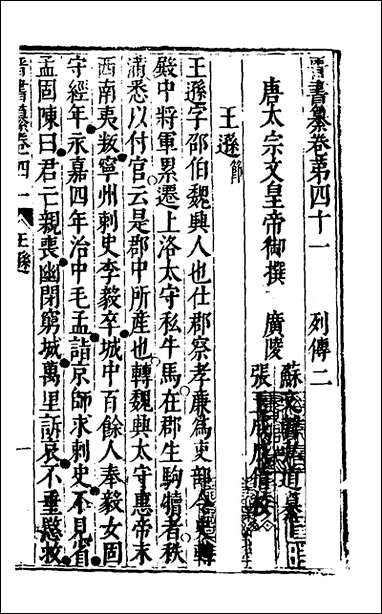 晉書纂卷第四十一　列傳二
唐太宗文皇帝御撰　廣陵
蘇文韓
張
王遜節
王遜字邵伯魏興人也仕郡察孝廉為吏部令史轉
殿中將軍累遷上洛太守私牛馬在郡生駒犢者秩
滿悉以付官云是郡中所產也轉魏興太守惠帝末
西南夷叛寧州刺史李毅卒城中百餘人奉毅女固
守經年永嘉四年治中毛孟詣京師求刺史不見省
孟固陳曰君亡親喪幽閉窮城萬里訴哀不垂愍救
晉書纂卷四一　王遜　一